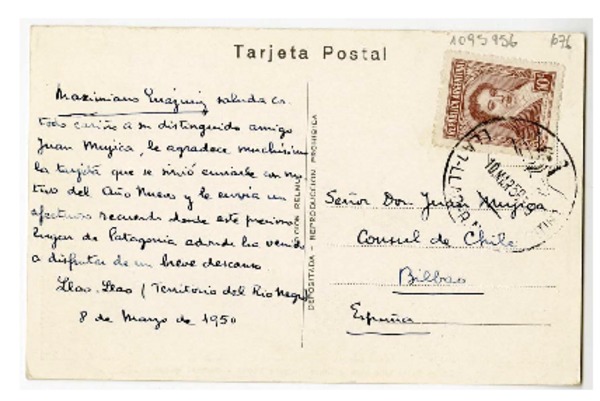 1095956 676
Tarjeta Postal
REPUBLICA ARGENTINA 10 c
Maximiano saluda con
todo cariño a su distinguido amigo
Juan Mujica, le agradece muchísimo
la tarjeta que se sirvió enviarle con mo-
tivo del Año Nuevo y le envía un
afectuoso recuerdo desde este precioso
lugar de Patagonia adonde ha venido
a disfrutar de un breve descanso.
Llao-Llao (Territorio del Rio Negro)
8 de Marzo de 1950
DEPOSITADA - REPRODUCCION PROHIBIDA
LLAO-LLAO
10 MAR 50
Señor Don Juan Mujica
Consul de Chile
Bilbao
España